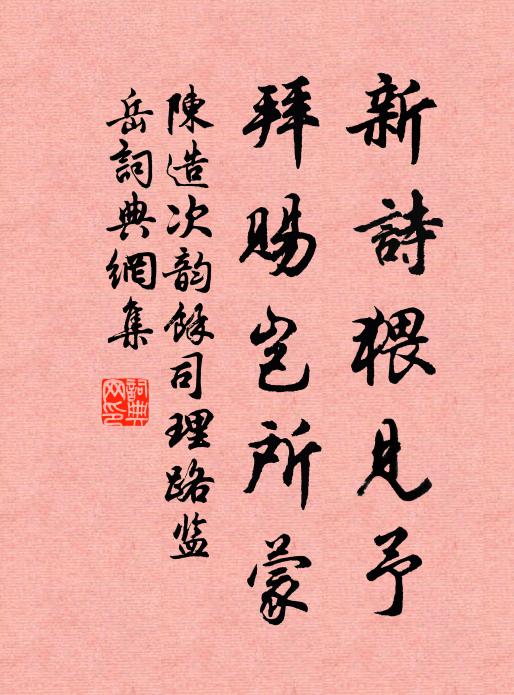 新詩猥見予
拜賜豈所蒙
陳造次韵餘司理路监
岳詞典網集
詞典
网印